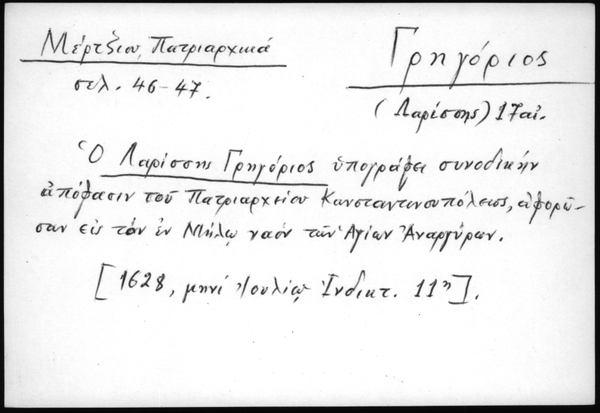 Μέρτζιου, Πατριαρχικά
σελ. 46-47.
Γρηγόριος
(Λαρίσσης) 17 αἰ.
Ὁ Λαρίσσης Γρηγόριος ὑπογράφει συνοδικήν
ἀπόφασιν τοῦ Πατριαρχείου Κωνσταντινουπόλεως, ἀφορῶ-
σαν εἰς τὸν ἐν Μήλῳ ναόν τῶν Ἁγίων Ἀναργύρων.
[1628, μηνί Ἰουλίῳ Ἰνδικτ. 11η].